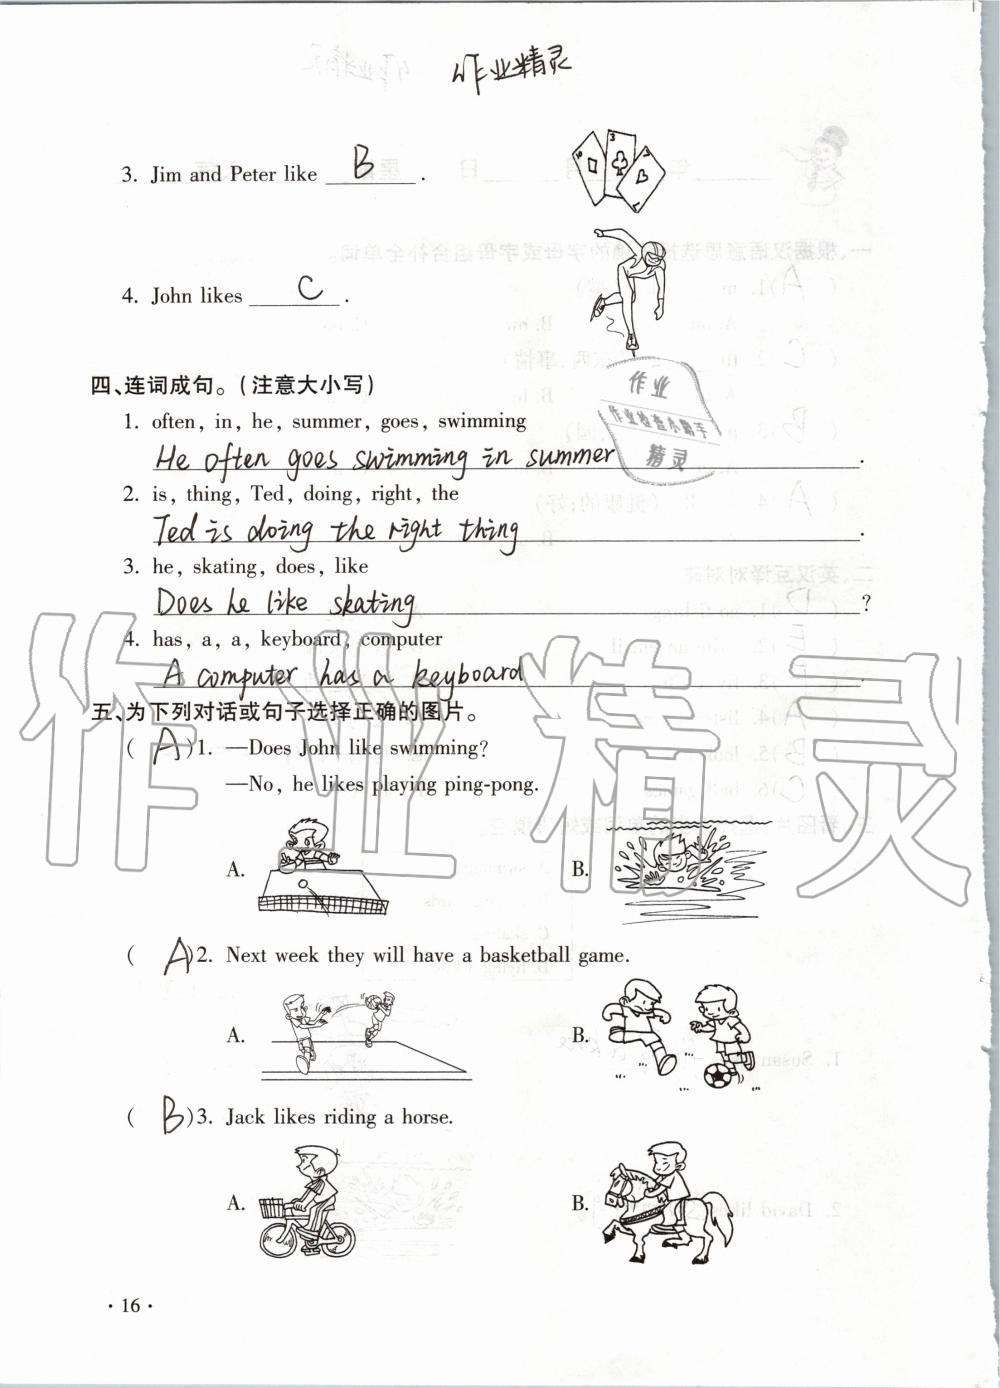 作业精灵
3. Jim and Peter like B .
4. John likes C .
四、连词成句。(注意大小写)
1. often, in, he, summer, goes, swimming
He often goes swimming in summer .
2. is, thing, Ted, doing, right, the
Ted is doing the right thing .
3. he, skating, does, like
Does he like skating ?
4. has, a, a, keyboard, computer
A computer has a keyboard .
五、为下列对话或句子选择正确的图片。
( A )1. —Does John like swimming?
—No, he likes playing ping-pong.
A. B.
( A )2. Next week they will have a basketball game.
A. B.
( B )3. Jack likes riding a horse.
A. B.
· 16 ·
作业
作业检查小助手
精灵
作业精灵